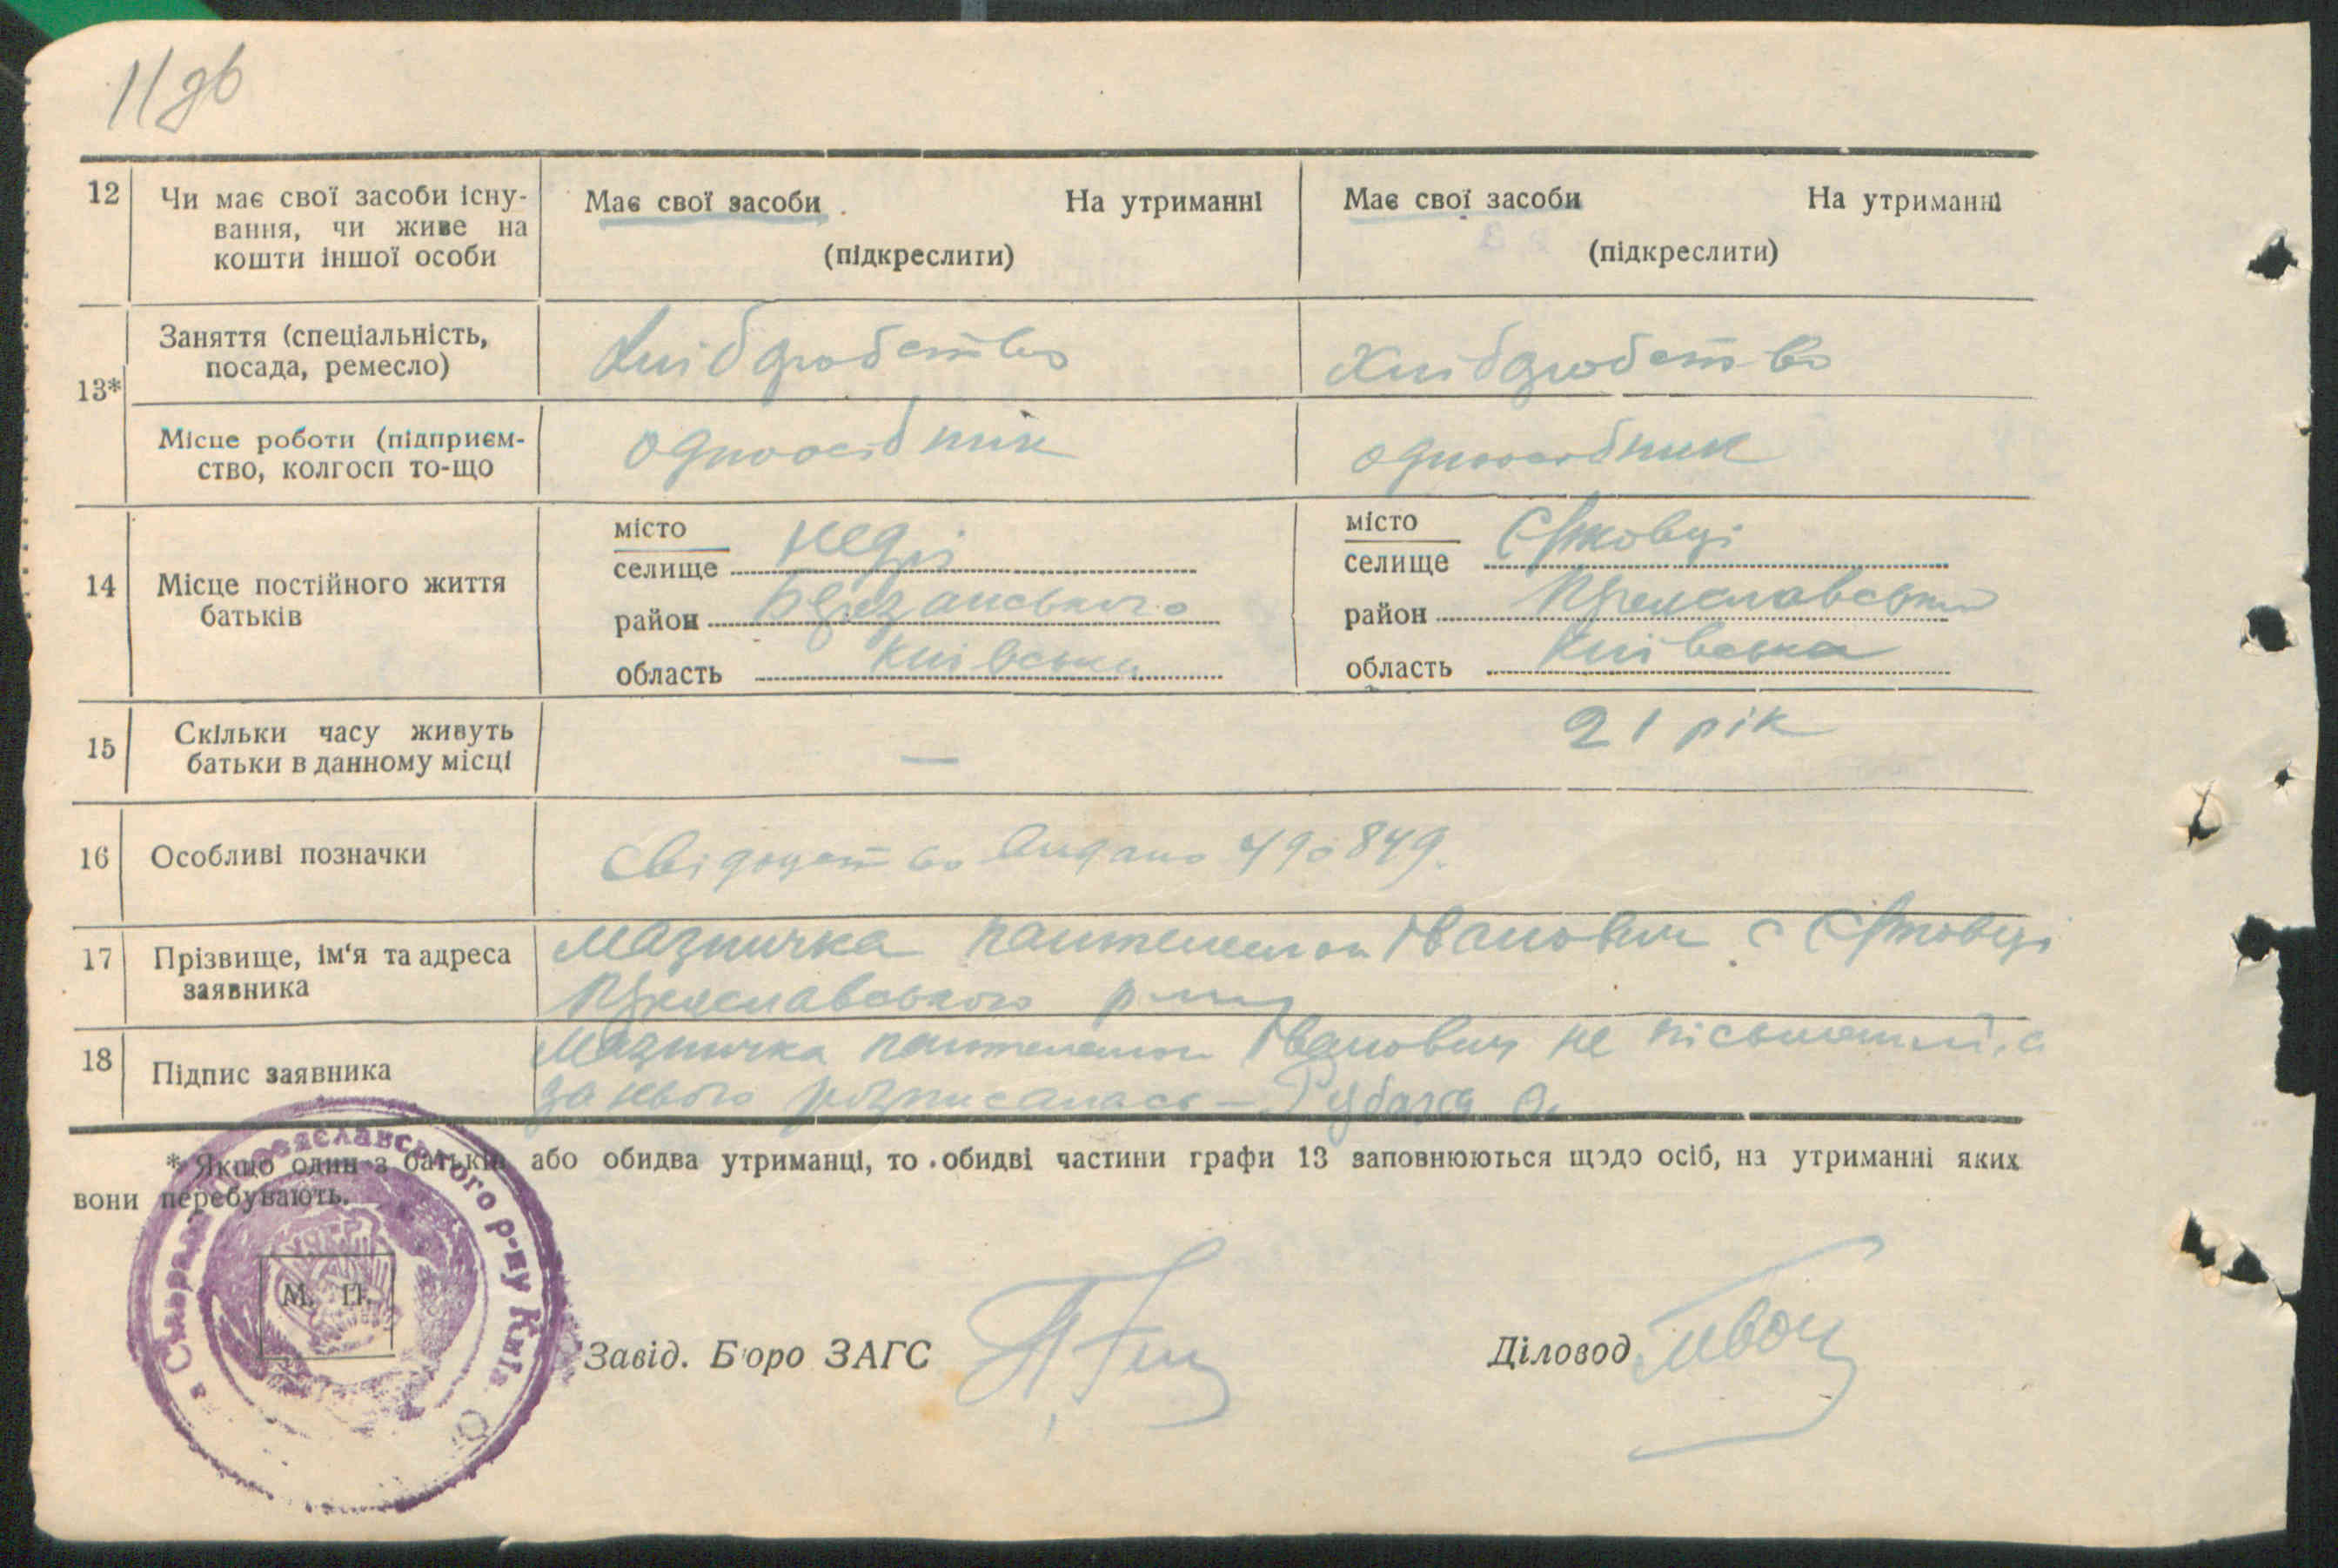 11 зв
12 Чи має свої засоби існу- Має свої засоби На утриманні Має свої засоби На утриманні
вання, чи живе на
кошти іншої особи (підкреслити) (підкреслити)
Заняття (спеціальність, Хлібдробство Хлібдробство
посада, ремесло)
13*
Місце роботи (підприєм- одноосібник одноосібник
ство, колгосп то-що
14 Місце постійного життя
батьків
місто
селище Недрі
район Березанського
область Київська
місто
селище
район
область Київська
15 Скільки часу живуть — 21 рік
батьки в данному місці
16 Особливі позначки Свідоцтво видано 490849.
17 Прізвище, ім'я та адреса Мазничка Пантелемон Іванович с
заявника
18 Підпис заявника Мазничка Пантелемон Іванович не письменний, а
за нього розписалась —
* Якщо один з батьків або обидва утриманці, то обидві частини графи 13 заповнюються щодо осіб, на утриманні яких
вони перебувають.
Переяславського р-ну Київ
М. П.
Завід. Бюро ЗАГС
Діловод